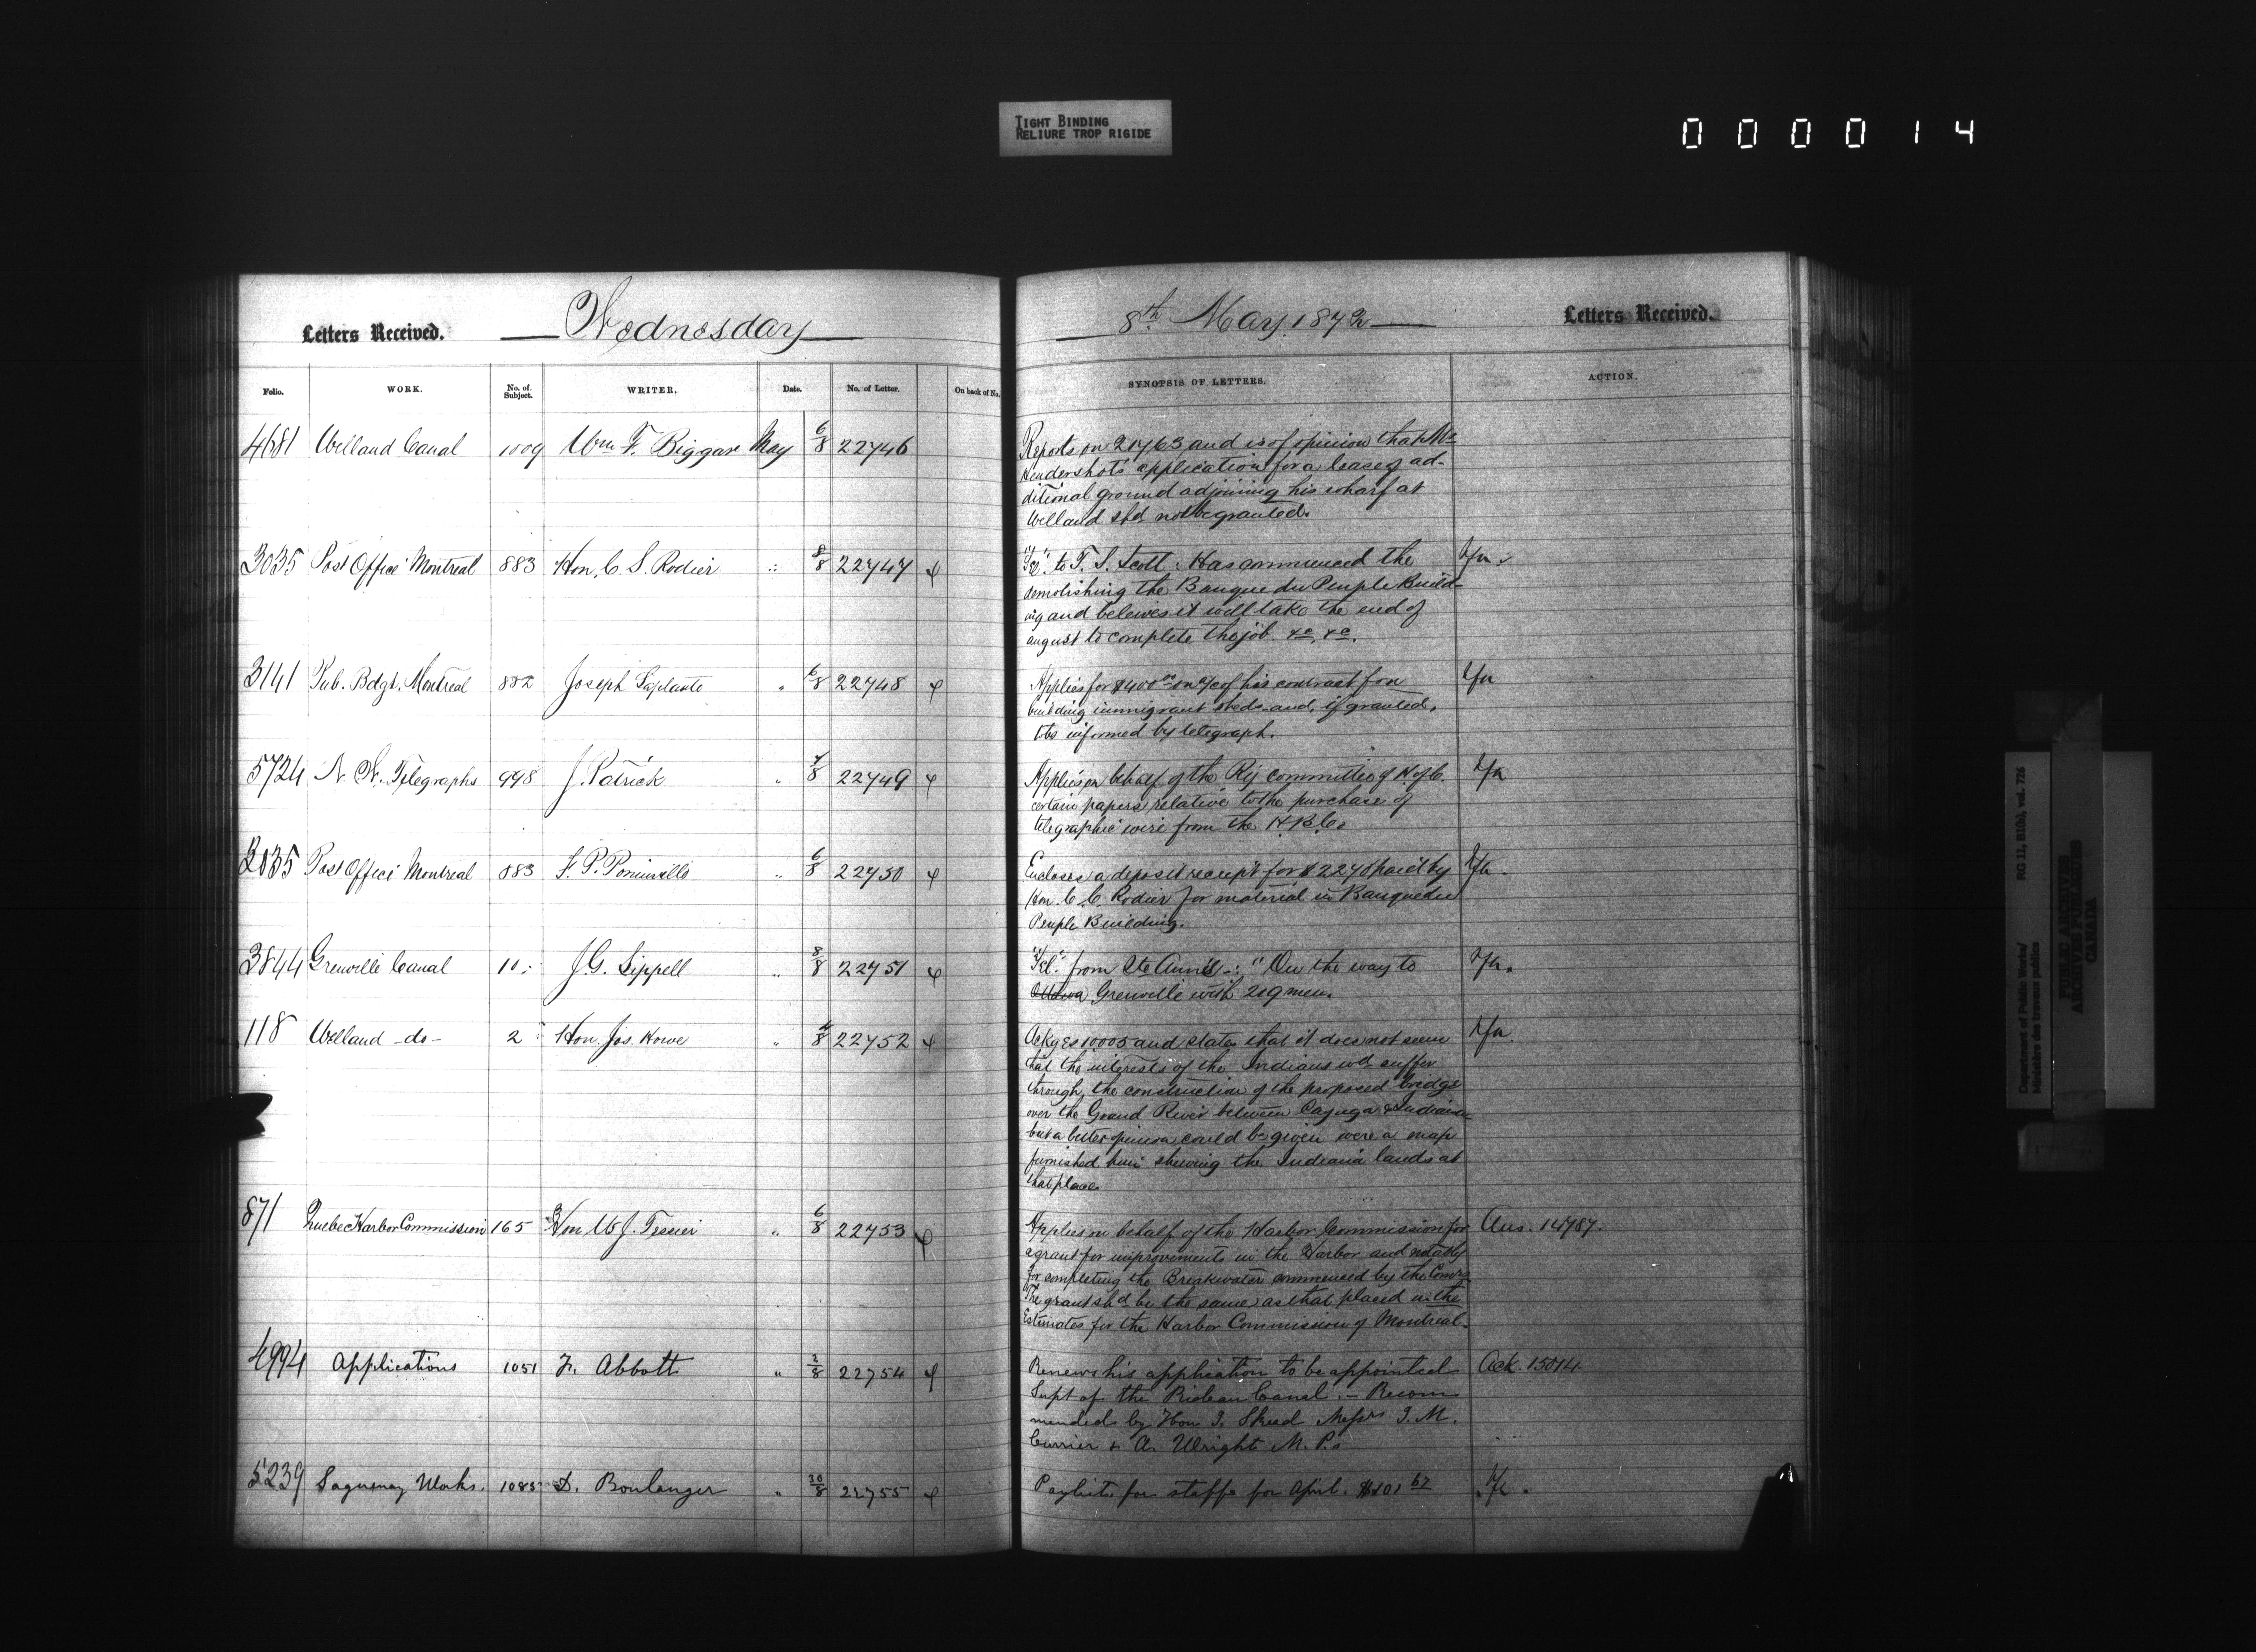 TIGHT BINDING
RELIURE TROP RIGIDE
0 0 0 0 1 4
Letters Received. Wednesday
8th May 1872 Letters Received.
Folio. WORK. No. of Subject. WRITER. Date. No. of Letter. On back of No. SYNOPSIS OF LETTERS. ACTION.
4681 Welland Canal 1009 Wm F. Biggar May 6/8 22746
Reports on 21763 and is of opinion that Mr
Hendershots application for a lease of ad-
ditional ground adjoining his wharf at
Welland shd not be granted.
3035 Post Office Montreal 883 Hon. C. S. Rodier " 8/8 22747
"Tel" to T. S. Scott: Has commenced the
demolishing the Banque du Peuple Build-
ing and beleives it will take the end of
august to complete the job &c, &c.
3141 Pub. Bdgs. Montreal 882 Joseph Laplante " 6/8 22748
Applies for $400 00 on a/c of his contract for
building immigrant sheds and, if granted,
to be informed by telegraph.
5724 N. W. Telegraphs 998 J. Patrick " 7/8 22749
Applies on behalf of the Ry committee of H. of C.
certain papers relative to the purchase of
telegraphic wire from the H. B. Co
3035 Post Office Montreal 883 F. P. Pominville " 6/8 22750
Encloses a deposit receipt for $2240 paid by
Hon. C. C. Rodier for material in Banque du
Peuple Building.
3844 Grenville Canal 10 J. G. Sippell " 8/8 22751
"Tel." from Ste Anne's -: "On the way to
Ottawa Grenville with 209 men.
118 Welland -do- 2 Hon. Jos. Howe " 4/8 22752
Ackges 10005 and states that it does not seem
that the interests of the Indians wd suffer
through the construction of the proposed bridge
over the Grand River between Cayuga & Indiana
but a better opinion could be given were a map
furnished him shewing the Indian lands at
that place.
871 Quebec Harbor Commission 165 Hon U J. Tessier " 6/8 22753
Applies on behalf of the Harbor Commission for Ans. 14787.
a grant for improvements in the Harbor and notably
for completing the Breakwater commenced by the Comrs
The grant shd be the same as that placed in the
Estimates for the Harbor Commission of Montreal.
4994 Applications 1051 F. Abbott " 2/8 22754
Renews his application to be appointed Ack. 15014.
Supt of the Rideau Canal. - Recom
mended by Hon J. Skead Messrs J. M.
Currier & A. Wright M. P.s
5239 Saguenay Works. 1085 D. Boulanger " 30/8 22755
Paylist for staff for April. $101 67
Department of Public Works/
Ministère des travaux publics
RG 11, B1(b), vol. 726
PUBLIC ARCHIVES
ARCHIVES PUBLIQUES
CANADA